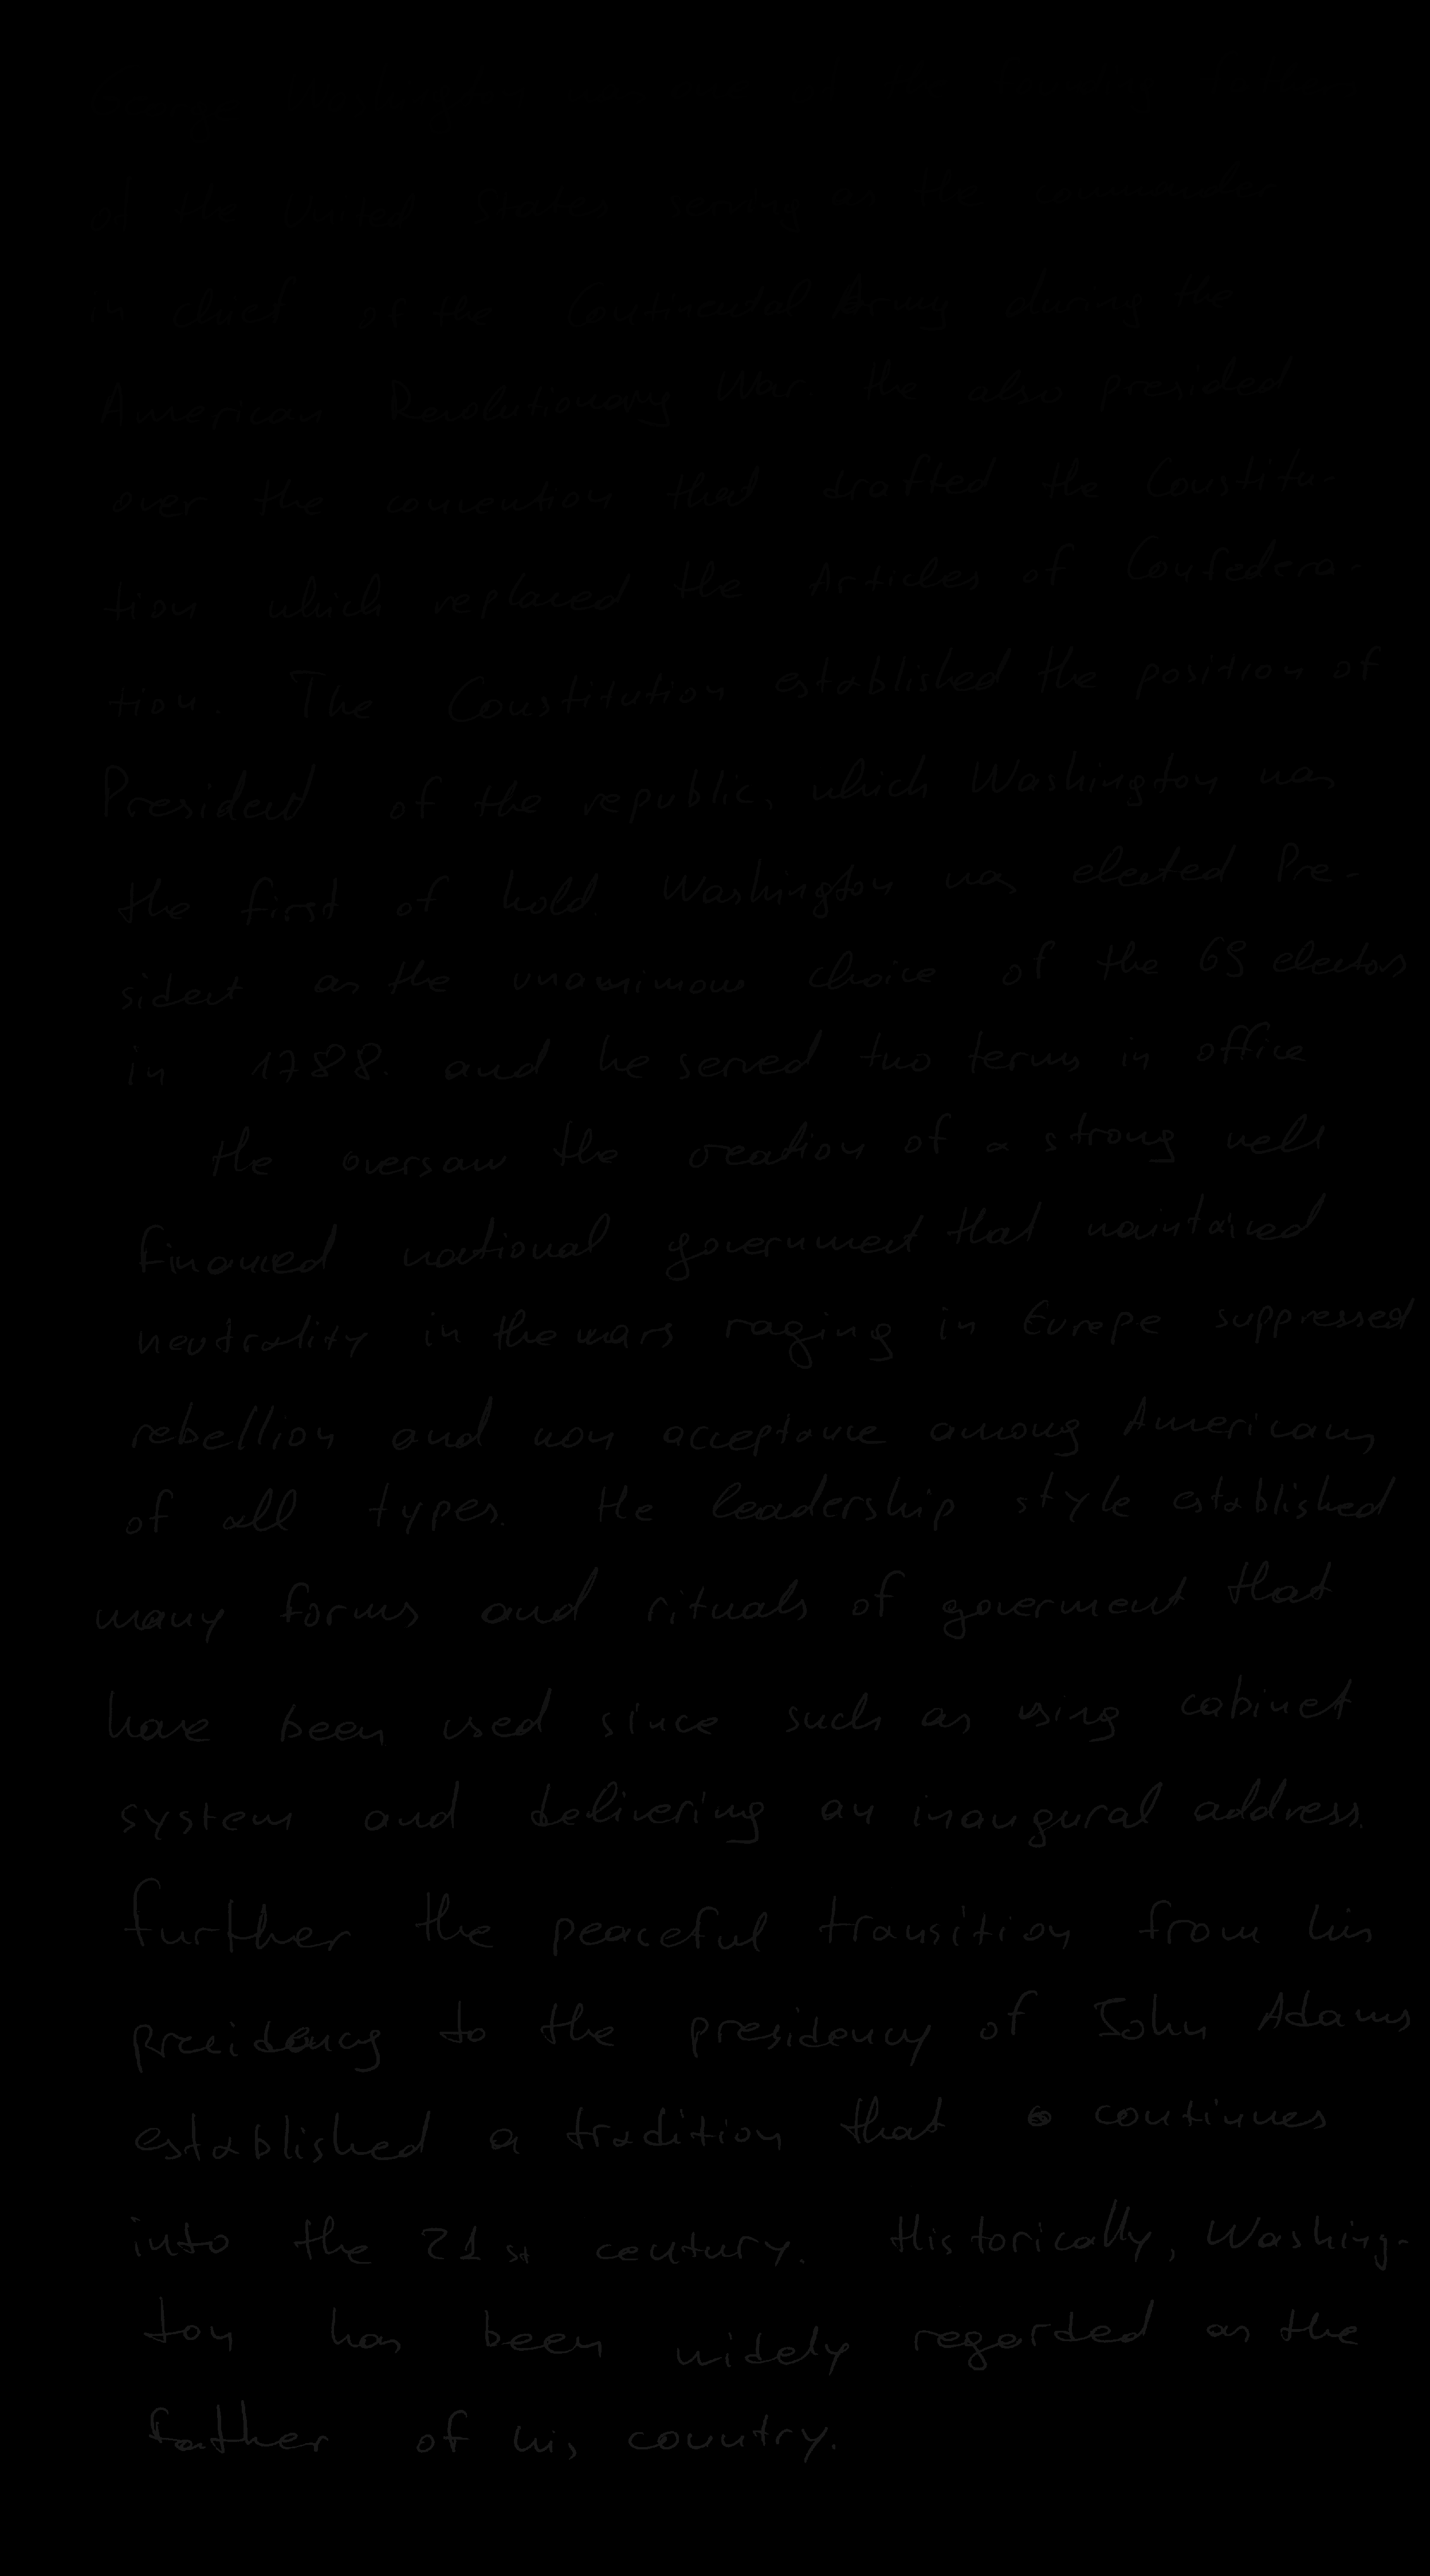 of the United States serving as the commander
in chief of the Continental Army during the
American Revolutionary War the also presided
over the convention that drafted the Constitu-
tion which replaced the Articles of Confedera-
tion. The Constitution established the position of
President of the republic, which Washington was
the first of hold. Washington was elected Pre-
sident as the unamimous choice of the 69 electors
in 1788. and he served two terms in office
He oversaw the creation of a strong well
financed national government that maintained
neutrality in the wars raging in Europe suppressed
rebellion and non acceptance among Americans
of all types. He leadership style established
many forms and rituals of goverment that
have been used since such as using cabinet
system and delivering an inaugural address.
further the peaceful transition from his
preidency to the presidency of John Adams
established a tradition that continues
into the 21st century. Historically, Washing-
ton has been widely regarded as the
father of his country.